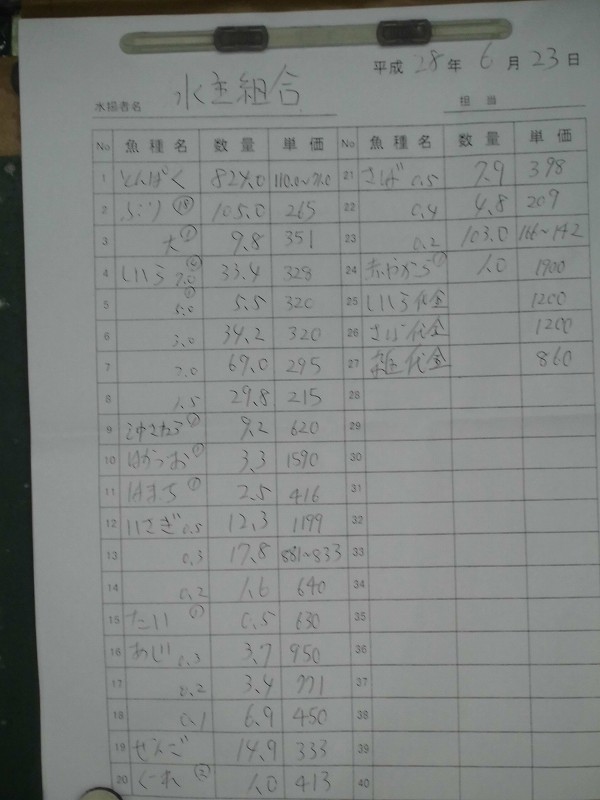 平成 28 年 6 月 23 日
水揚者名 水主組合
担当
No 魚種名 数量 単価 No 魚種名 数量 単価
1 とんぱく 824.0 110.0~71.0 21 さば 0.5 7.9 398
2 ぶり ⑱ 105.0 265 22 0.4 4.8 209
3 大 ① 9.8 351 23 0.2 103.0 166~142
4 しいら 7.0 33.4 328 24 赤やがら ① 1.0 1900
5 5.0 ① 5.5 320 25 しいら代金 1200
6 3.0 34.2 320 26 さば代金 1200
7 2.0 69.0 295 27 雑魚代金 860
8 1.5 29.8 215 28
9 沖さわら 9.2 620 29
10 はがつお ① 3.3 1590 30
11 はまち ① 2.5 416 31
12 いさぎ 0.5 12.3 1199 32
13 0.3 17.8 881~833 33
14 0.2 1.6 640 34
15 たい ① 0.5 630 35
16 あじ 0.3 3.7 950 36
17 0.2 3.4 771 37
18 0.1 6.9 450 38
19 ぜんご 14.9 333 39
20 ぐれ ② 1.0 413 40